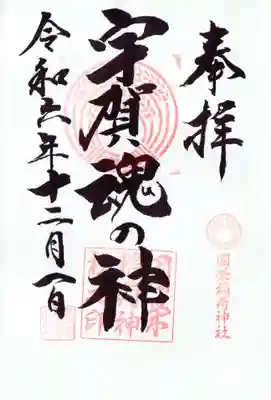 奉拝
宇賀魂の神
令和六年十二月一日